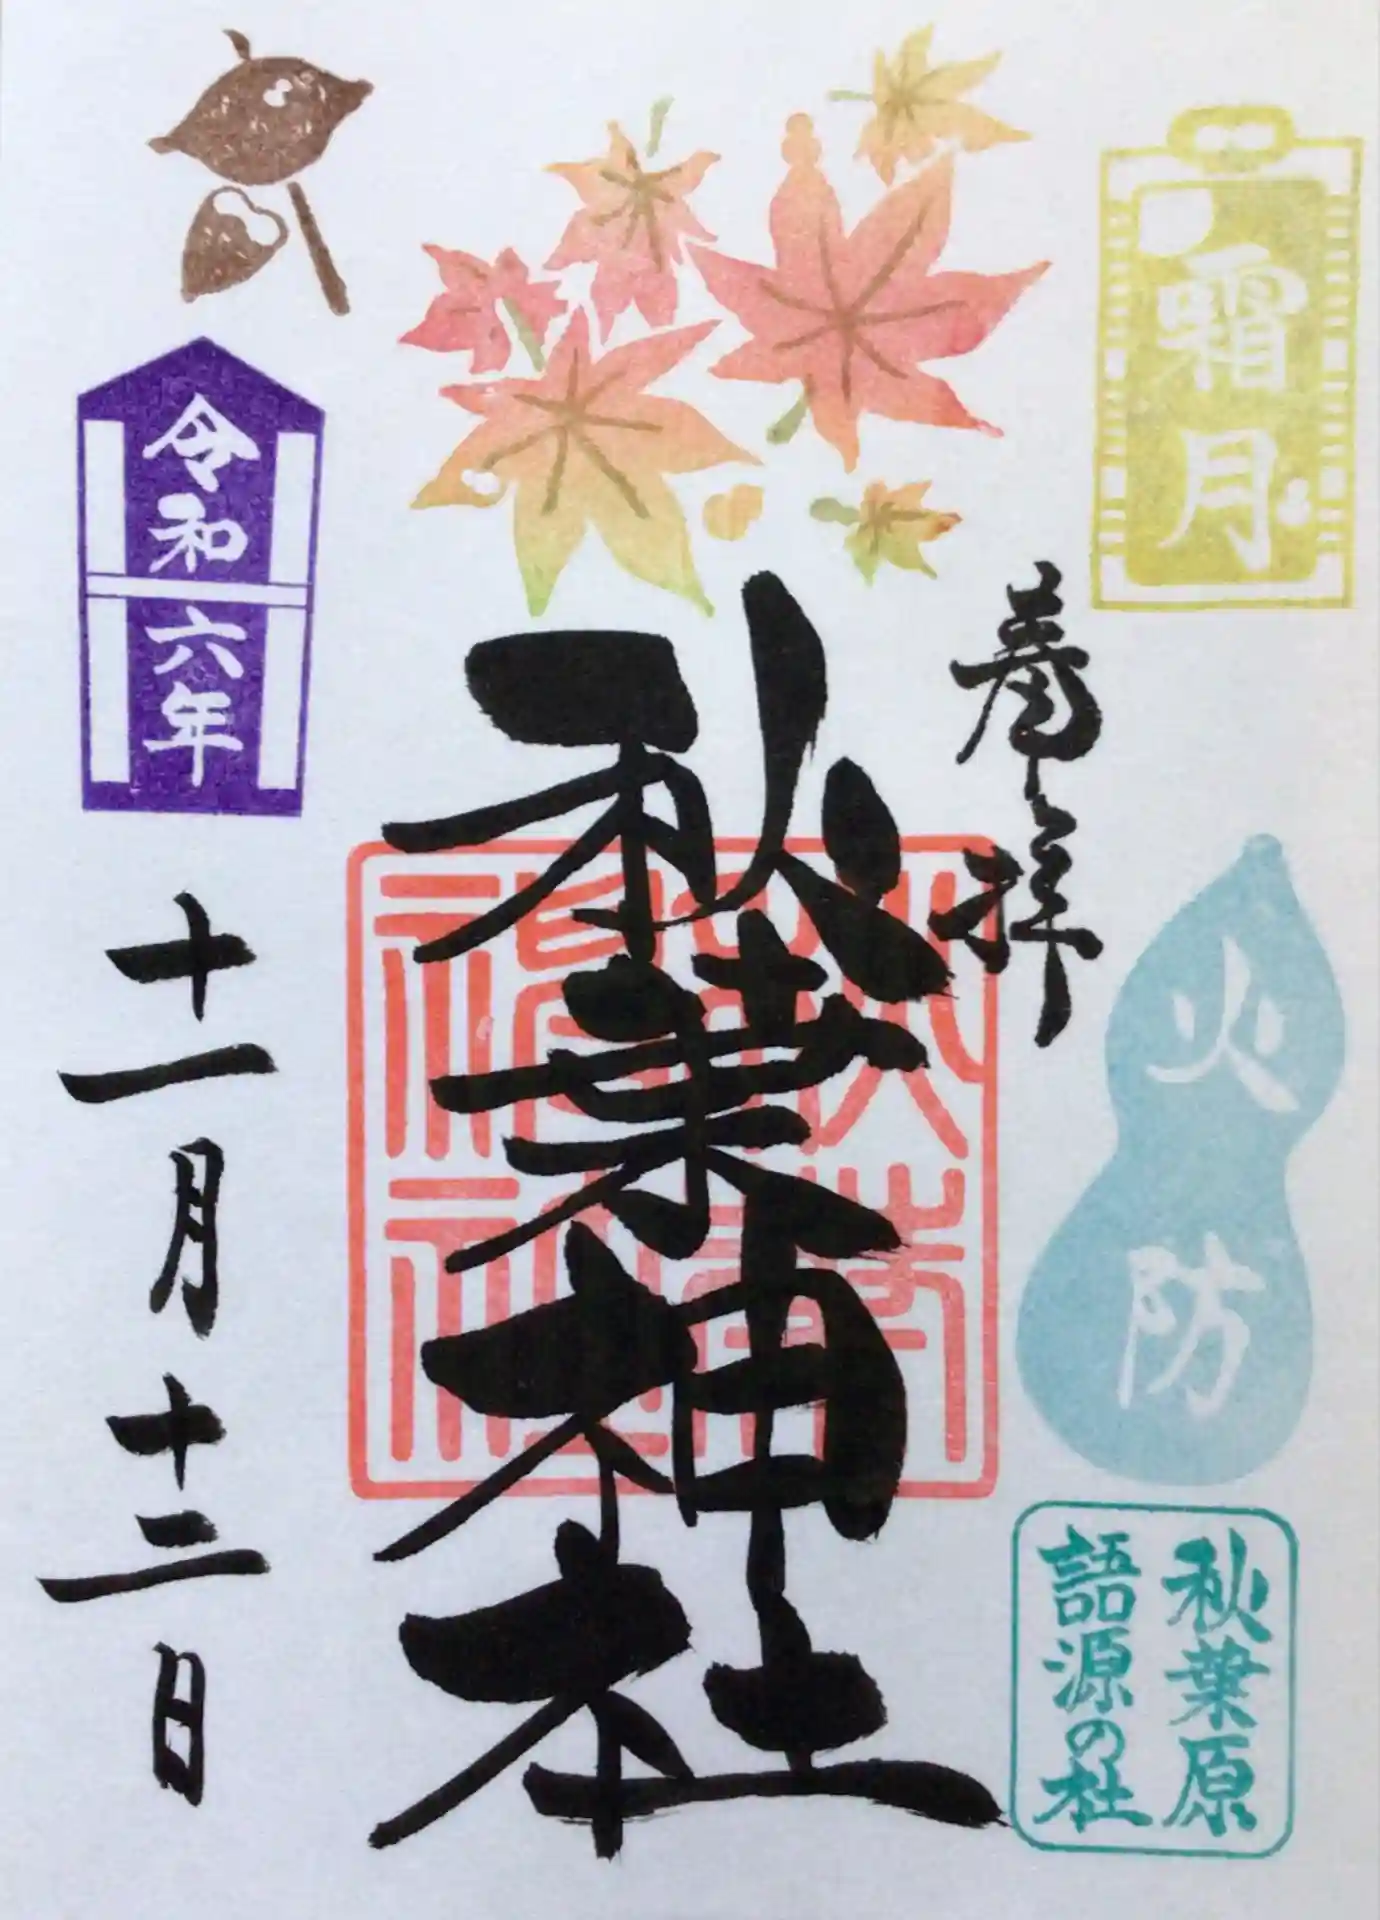 霜月
奉拝
火防
秋葉原
語源の杜
秋葉神社
秋葉
神社
令和六年
十一月十二日